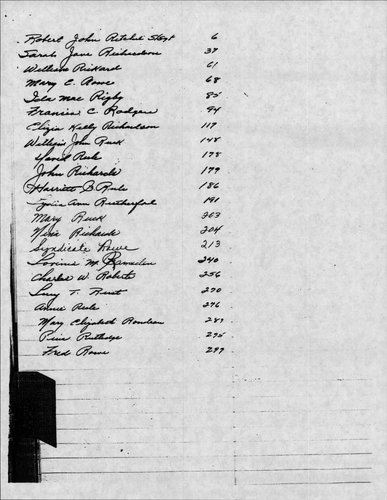 Robert John Ritchie 6
Sarah Jane Richardson 37
William Rickard 61
Mary E. Rowe 68
Ida Mae Rigby 85
Francis C. Rodgers 94
Eliza Kelly Richardson 117
William John Rusk 148
David Rule 178
John Richards 179
Harriett S Rule 186
Ann Rutherford 191
Mary Rusk 203
Richards 204
Syndicate Rowe 213
M. 240
Charles W. Roberts 256
Lucy T. 270
Annie Rule 276
Mary Elizabeth 289
Rutledge 295
Fred Rowe 299